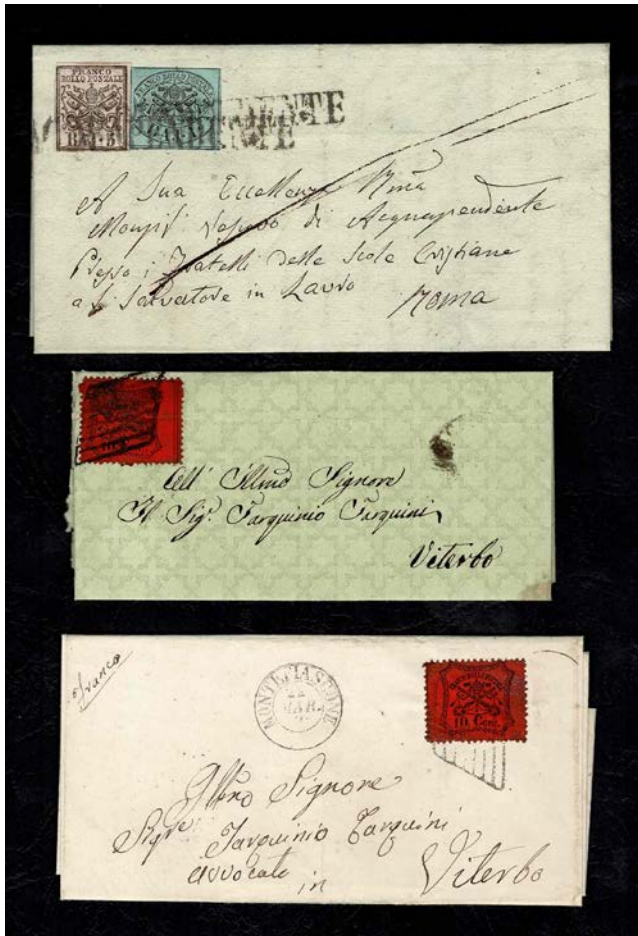 FRANCO
BOLLO PONZALE
BAJ. 5
A Sua Eccellenza Rma
Vescovo di Acquapendente
Presso i Fratelli delle Scole Cristiane
a S. Salvatore in Lauro
Roma
All' Illmo Signore
Il Sigr. Tarquinio Tarquini
Viterbo
franco
MONTEFIASCONE
22
MAR.
10 Cent.
Illmo Signore
Sigre Tarquinio Tarquini
avvocato
in Viterbo